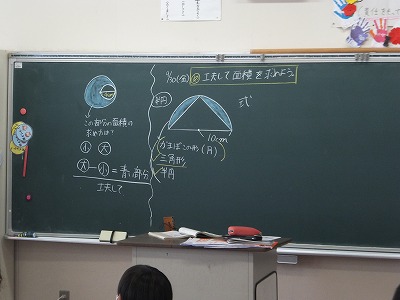 この部分の面積の
求め方は?
小 大
大 − 小 = 青い部分
工夫して
9/30(金) め 工夫して面積を求めよう。
半円
式
10cm
かまぼこの形(月)
三角形
半円